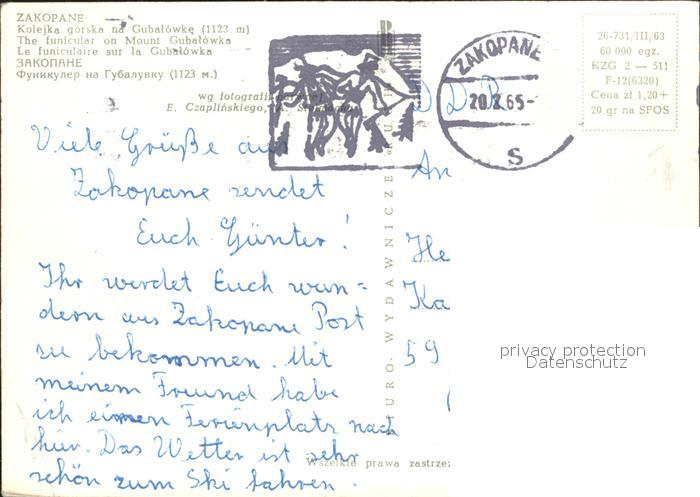 ZAKOPANE
Kolejka górska na Gubałówkę (1123 m)
The funicular on Mount Gubałówka
Le funiculaire sur la Gubałówka
ЗАКОПАНЕ
Фуникулер на Губалувку (1123 м.)
wg fotografii
E. Czaplińskiego,
ZAKOPANE
65
S
26-731/III/63
60 000 egz.
KZG 2 — 511
F-12(6320)
Cena zł 1,20+
20 gr na SFOS
Viele Grüße aus
Zakopane sendet
Euch Günter!
Ihr werdet Euch wun=
dern aus Zakopane Post
zu bekommen. Mit
meinem Freund habe
ich einen Ferienplatz nach
hier. Das Wetter ist sehr
schön zum Ski fahren.
BIURO WYDAWNICZE „RUCH"
DDR
An
He
Ka
59
Wszelkie prawa zastrze
privacy protection
Datenschutz